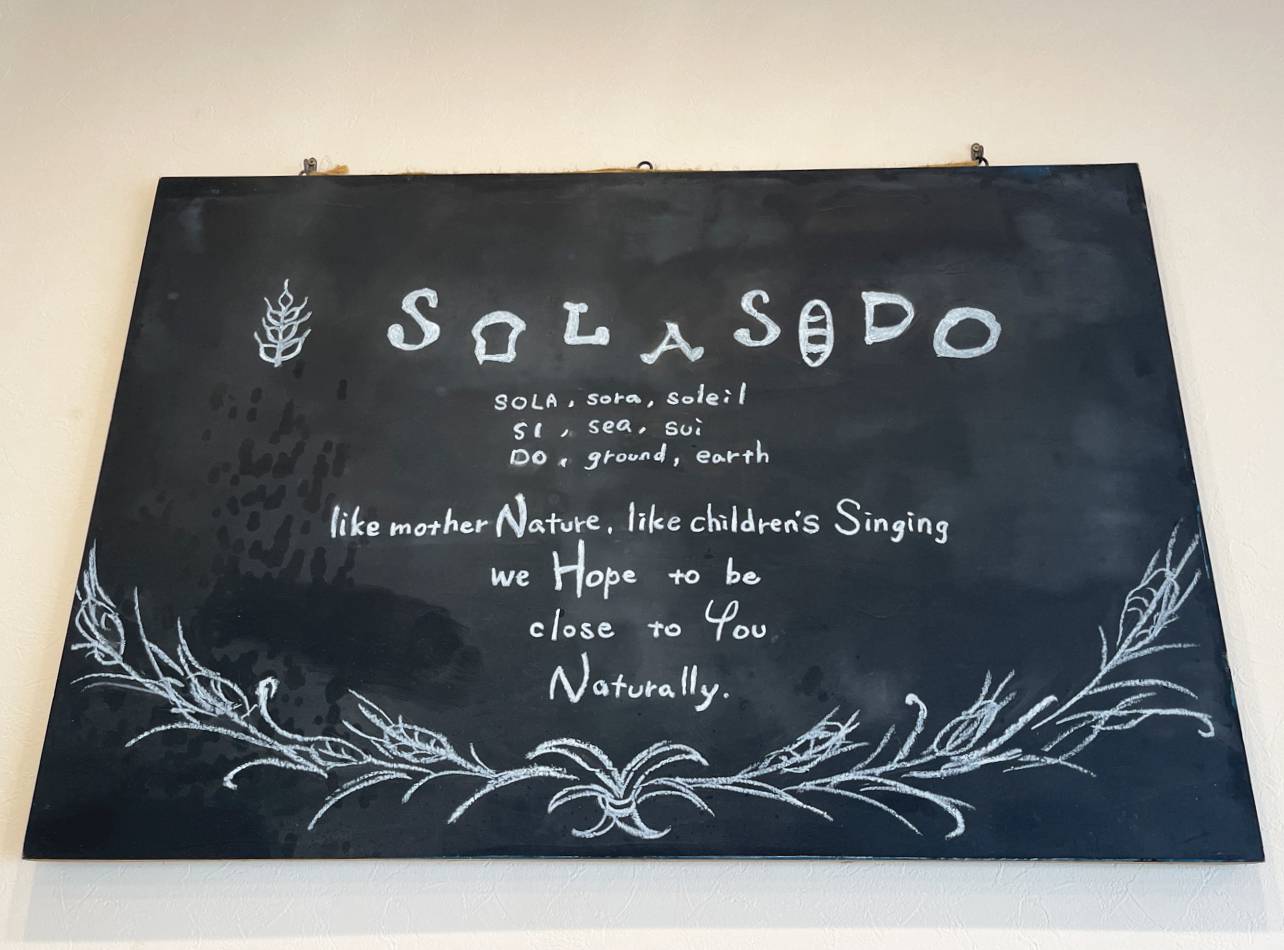 SOLASIDO
SOLA, sora, soleil
SI, sea, sui
DO, ground, earth
like mother Nature, like children's Singing
we Hope to be
close to You
Naturally.